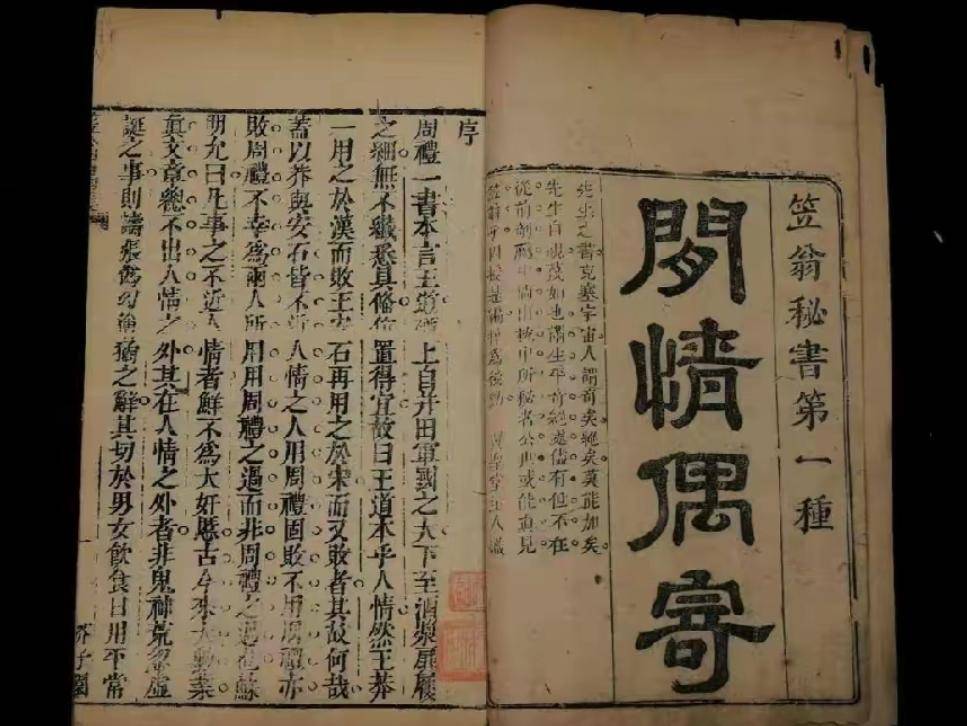 笠翁秘書第一種
閒情偶寄
先生之書充塞宇宙人謂奇矣絕矣莫能加矣
先生自視蔑如也謂生平奇絕處儘有但不在
從前剞劂中倘出枕中所秘者公世或能真見
笠翁乎因授是編梓為後勁 翼聖堂主人識
序
周禮一書本言王道上自井田軍國之大下至酒漿扉屨
之細無不纖悉具備位置得宜故曰王道本乎人情然王莽
一用之於漢而敗王安石再用之於宋而又敗者其故何哉
蓋以莽與安石皆不近人情之人用周禮固敗不用周禮亦
敗周禮不幸爲兩人所用用周禮之過而非周禮之過也蘇
明允曰凡事之不近人情者鮮不爲大奸慝古今來大勳業
眞文章總不出人情之外其在人情之外者非鬼神荒忽虛
誕之事則譸張僞幻獪猶之辭其切於男女飲食日用平常
芥子園